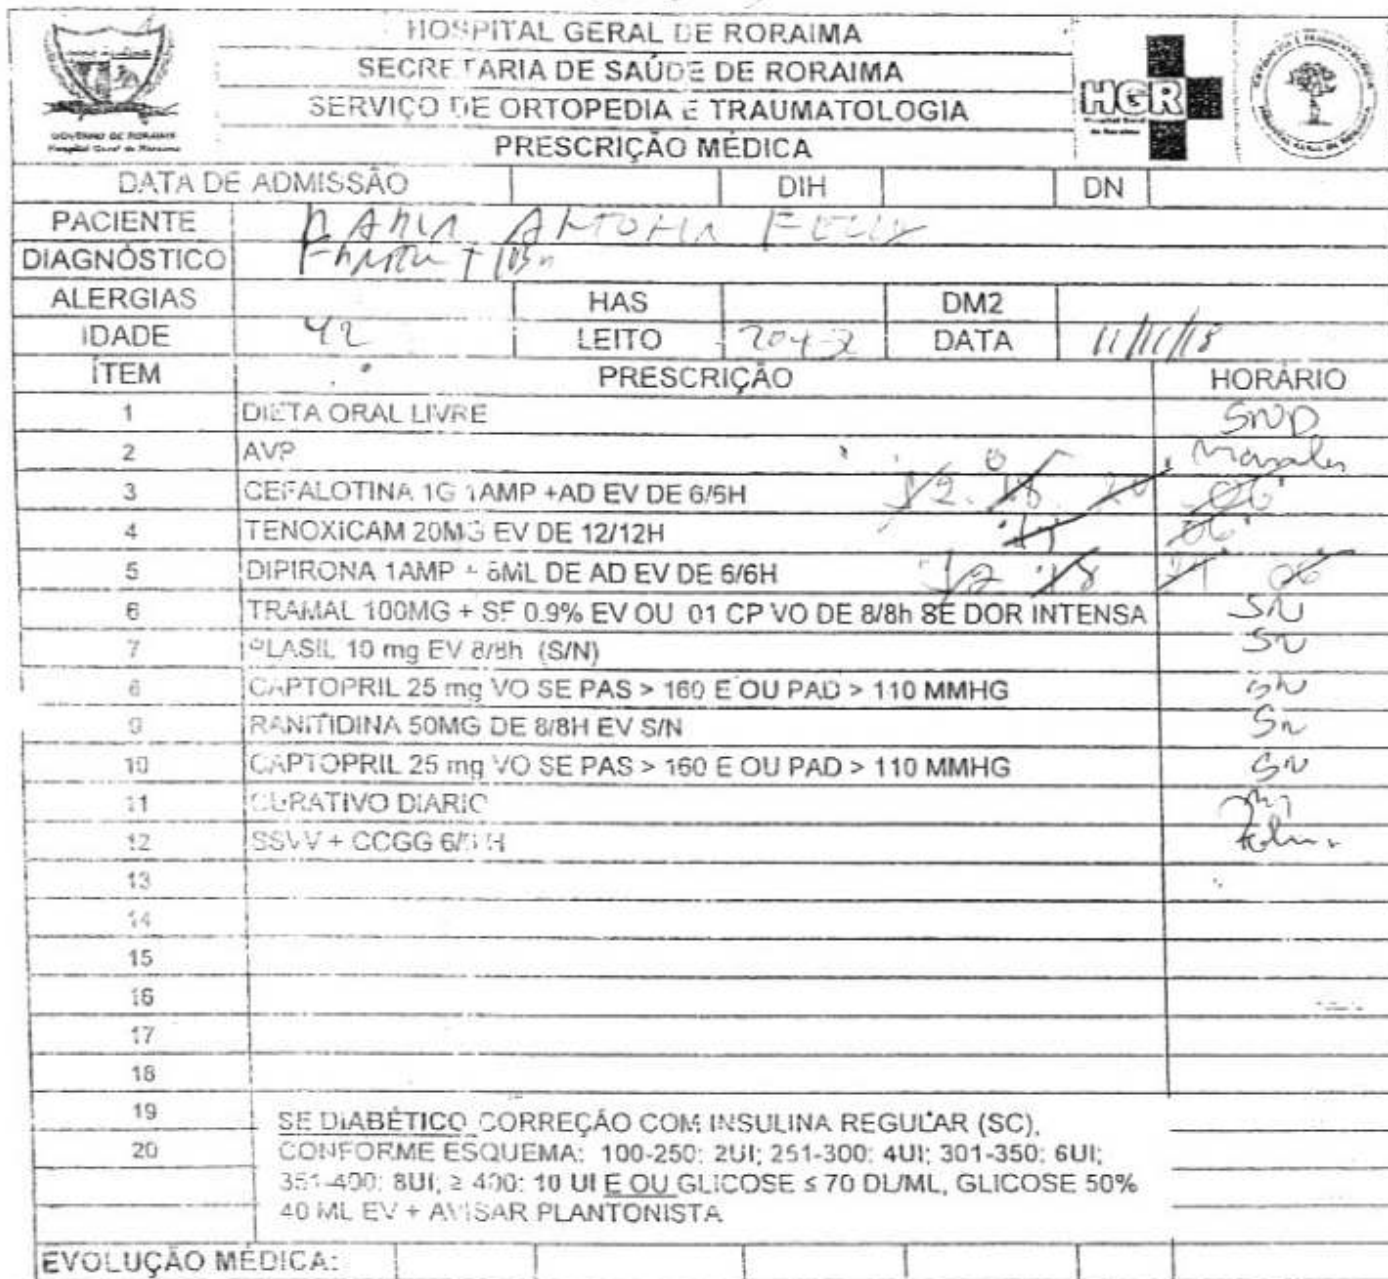 HOSPITAL GERAL DE RORAIMA
SECRETARIA DE SAÚDE DE RORAIMA
SERVIÇO DE ORTOPEDIA E TRAUMATOLOGIA
PRESCRIÇÃO MÉDICA
GOVERNO DE RORAIMA
Hospital Geral de Roraima
HGR
Hospital Geral
de Roraima
DATA DE ADMISSÃO DIH DN
PACIENTE MARIA ANTONIA FELIX
DIAGNÓSTICO
ALERGIAS HAS DM2
IDADE 42 LEITO 204-2 DATA 11/11/18
ÍTEM PRESCRIÇÃO HORÁRIO
1 DIETA ORAL LIVRE SND
2 AVP
3 CEFALOTINA 1G 1AMP +AD EV DE 6/6H 12 18 24 06
4 TENOXICAM 20MG EV DE 12/12H 06
5 DIPIRONA 1AMP + 8ML DE AD EV DE 6/6H 12 18 24 06
6 TRAMAL 100MG + SF 0.9% EV OU 01 CP VO DE 8/8h SE DOR INTENSA SN
7 PLASIL 10 mg EV 8/8h (S/N) SN
8 CAPTOPRIL 25 mg VO SE PAS > 160 E OU PAD > 110 MMHG SN
9 RANITIDINA 50MG DE 8/8H EV S/N SN
10 CAPTOPRIL 25 mg VO SE PAS > 160 E OU PAD > 110 MMHG SN
11 CURATIVO DIARIO
12 SSVV + CCGG 6/6 H
13
14
15
16
17
18
19 SE DIABÉTICO CORREÇÃO COM INSULINA REGULAR (SC),
20 CONFORME ESQUEMA: 100-250: 2UI; 251-300: 4UI; 301-350: 6UI;
351-400: 8UI, ≥ 400: 10 UI E OU GLICOSE ≤ 70 DL/ML, GLICOSE 50%
40 ML EV + AVISAR PLANTONISTA
EVOLUÇÃO MÉDICA: